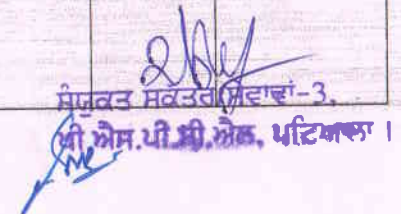 ਸੰਯੁਕਤ ਸਕੱਤਰ ਸੇਵਾਵਾਂ-3,
ਪੀ.ਐਸ.ਪੀ.ਸੀ.ਐਲ, ਪਟਿਆਲਾ ।